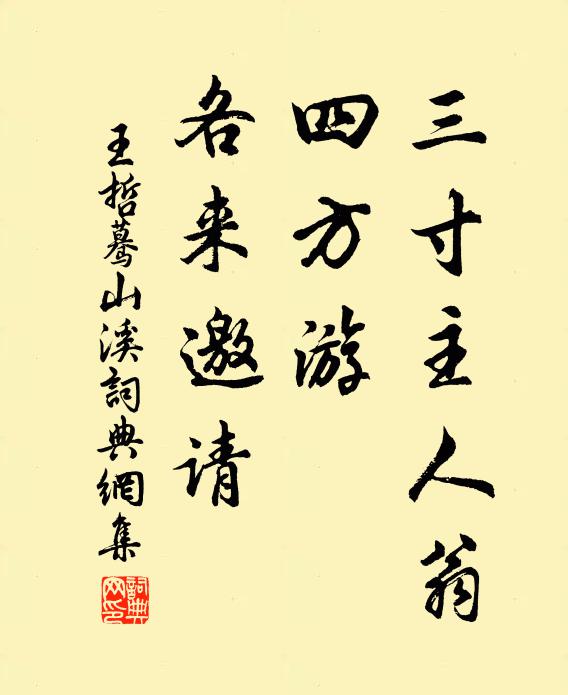 三寸主人翁
四方游
各来邀请
王哲蓦山溪詞典網集
詞典網印